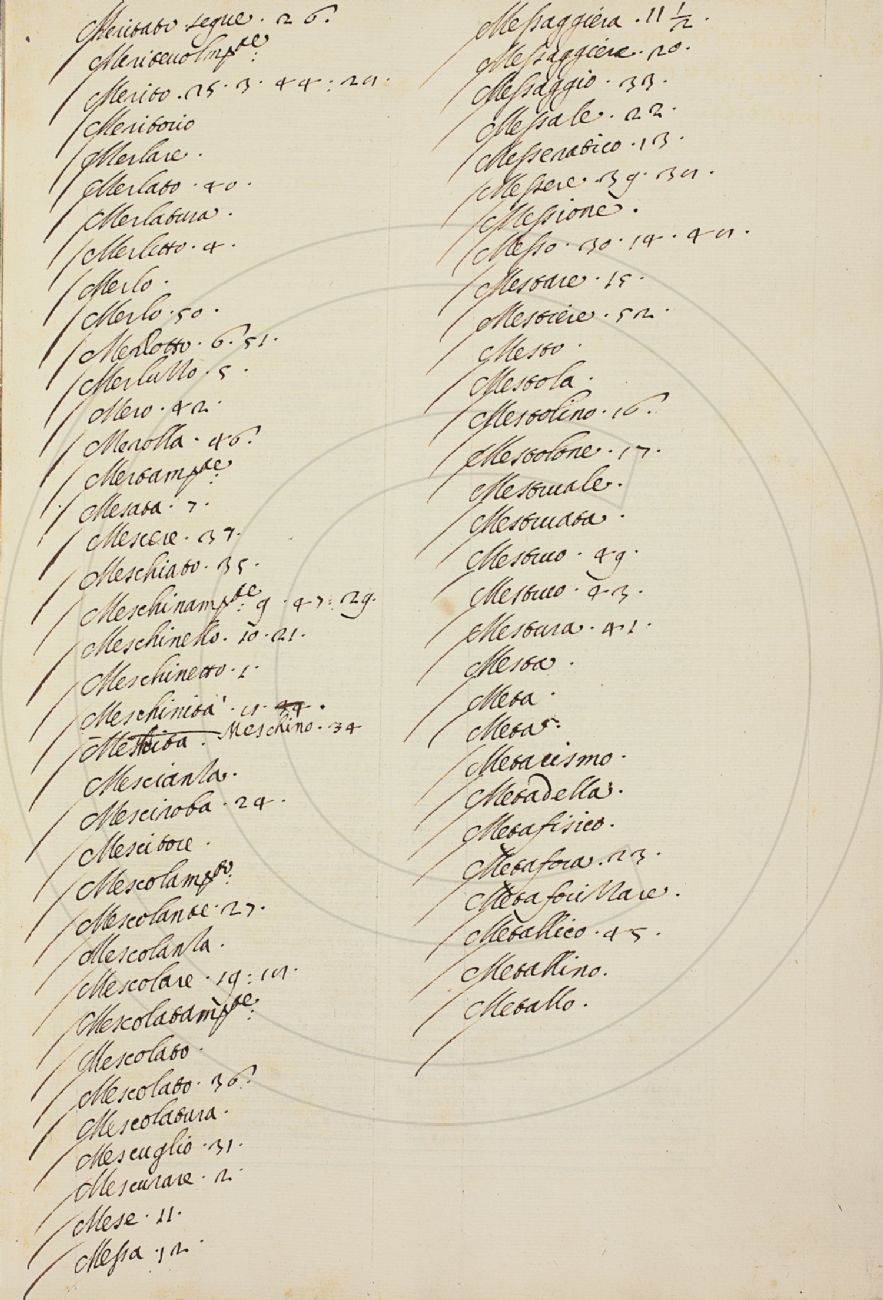 Meritato segue . 26.
Meritevolm.te
Merito . 25 . 3 . 44 :
Meritorio
Merlare .
Merlato . 40 .
Merlatura .
Merletto . 4 .
Merlo .
Merlo . 50 .
Merlotto . 6 . 51 .
Merluzzo . 5 .
Mero . 42 .
Merolla . 46 .
Mertam.te
Mesata . 7 .
Mescere . 37 .
Meschiato . 35 .
Meschinam.te 9 . 47 : 29 .
Meschinello . 10 . 21 .
Meschinetto . 1 .
Meschinità .
Meschino . 34
Mescianza .
Mesciroba . 24 .
Mescitore .
Mescolam.to
Mescolante . 27 .
Mescolanza .
Mescolare . 19 :
Mescolatam.te
Mescolato .
Mescolato . 36 .
Mescolatura .
Mescuglio . 31 .
Mescurare . 2 .
Mese . 11 .
Messa . 12 .
Messaggiera . 11 1/2 .
Messaggiere . 20 .
Messaggio . 33 .
Messale . 22 .
Messeratico . 13 .
Messere . 39 .
Messione .
Messo . 30 . 14 .
Mestare . 15 .
Mestiere . 52 .
Mesto .
Mestola .
Mestolino . 16 .
Mestolone . 17 .
Mestruale .
Mestruata .
Mestruo . 49 .
Mestruo . 43 .
Mestura . 41 .
Mesta .
Meta .
Meta
Metacismo .
Metadella .
Metafisico .
Metafora . 23 .
Metaforizzare .
Metallico . 45 .
Metallino .
Metallo .